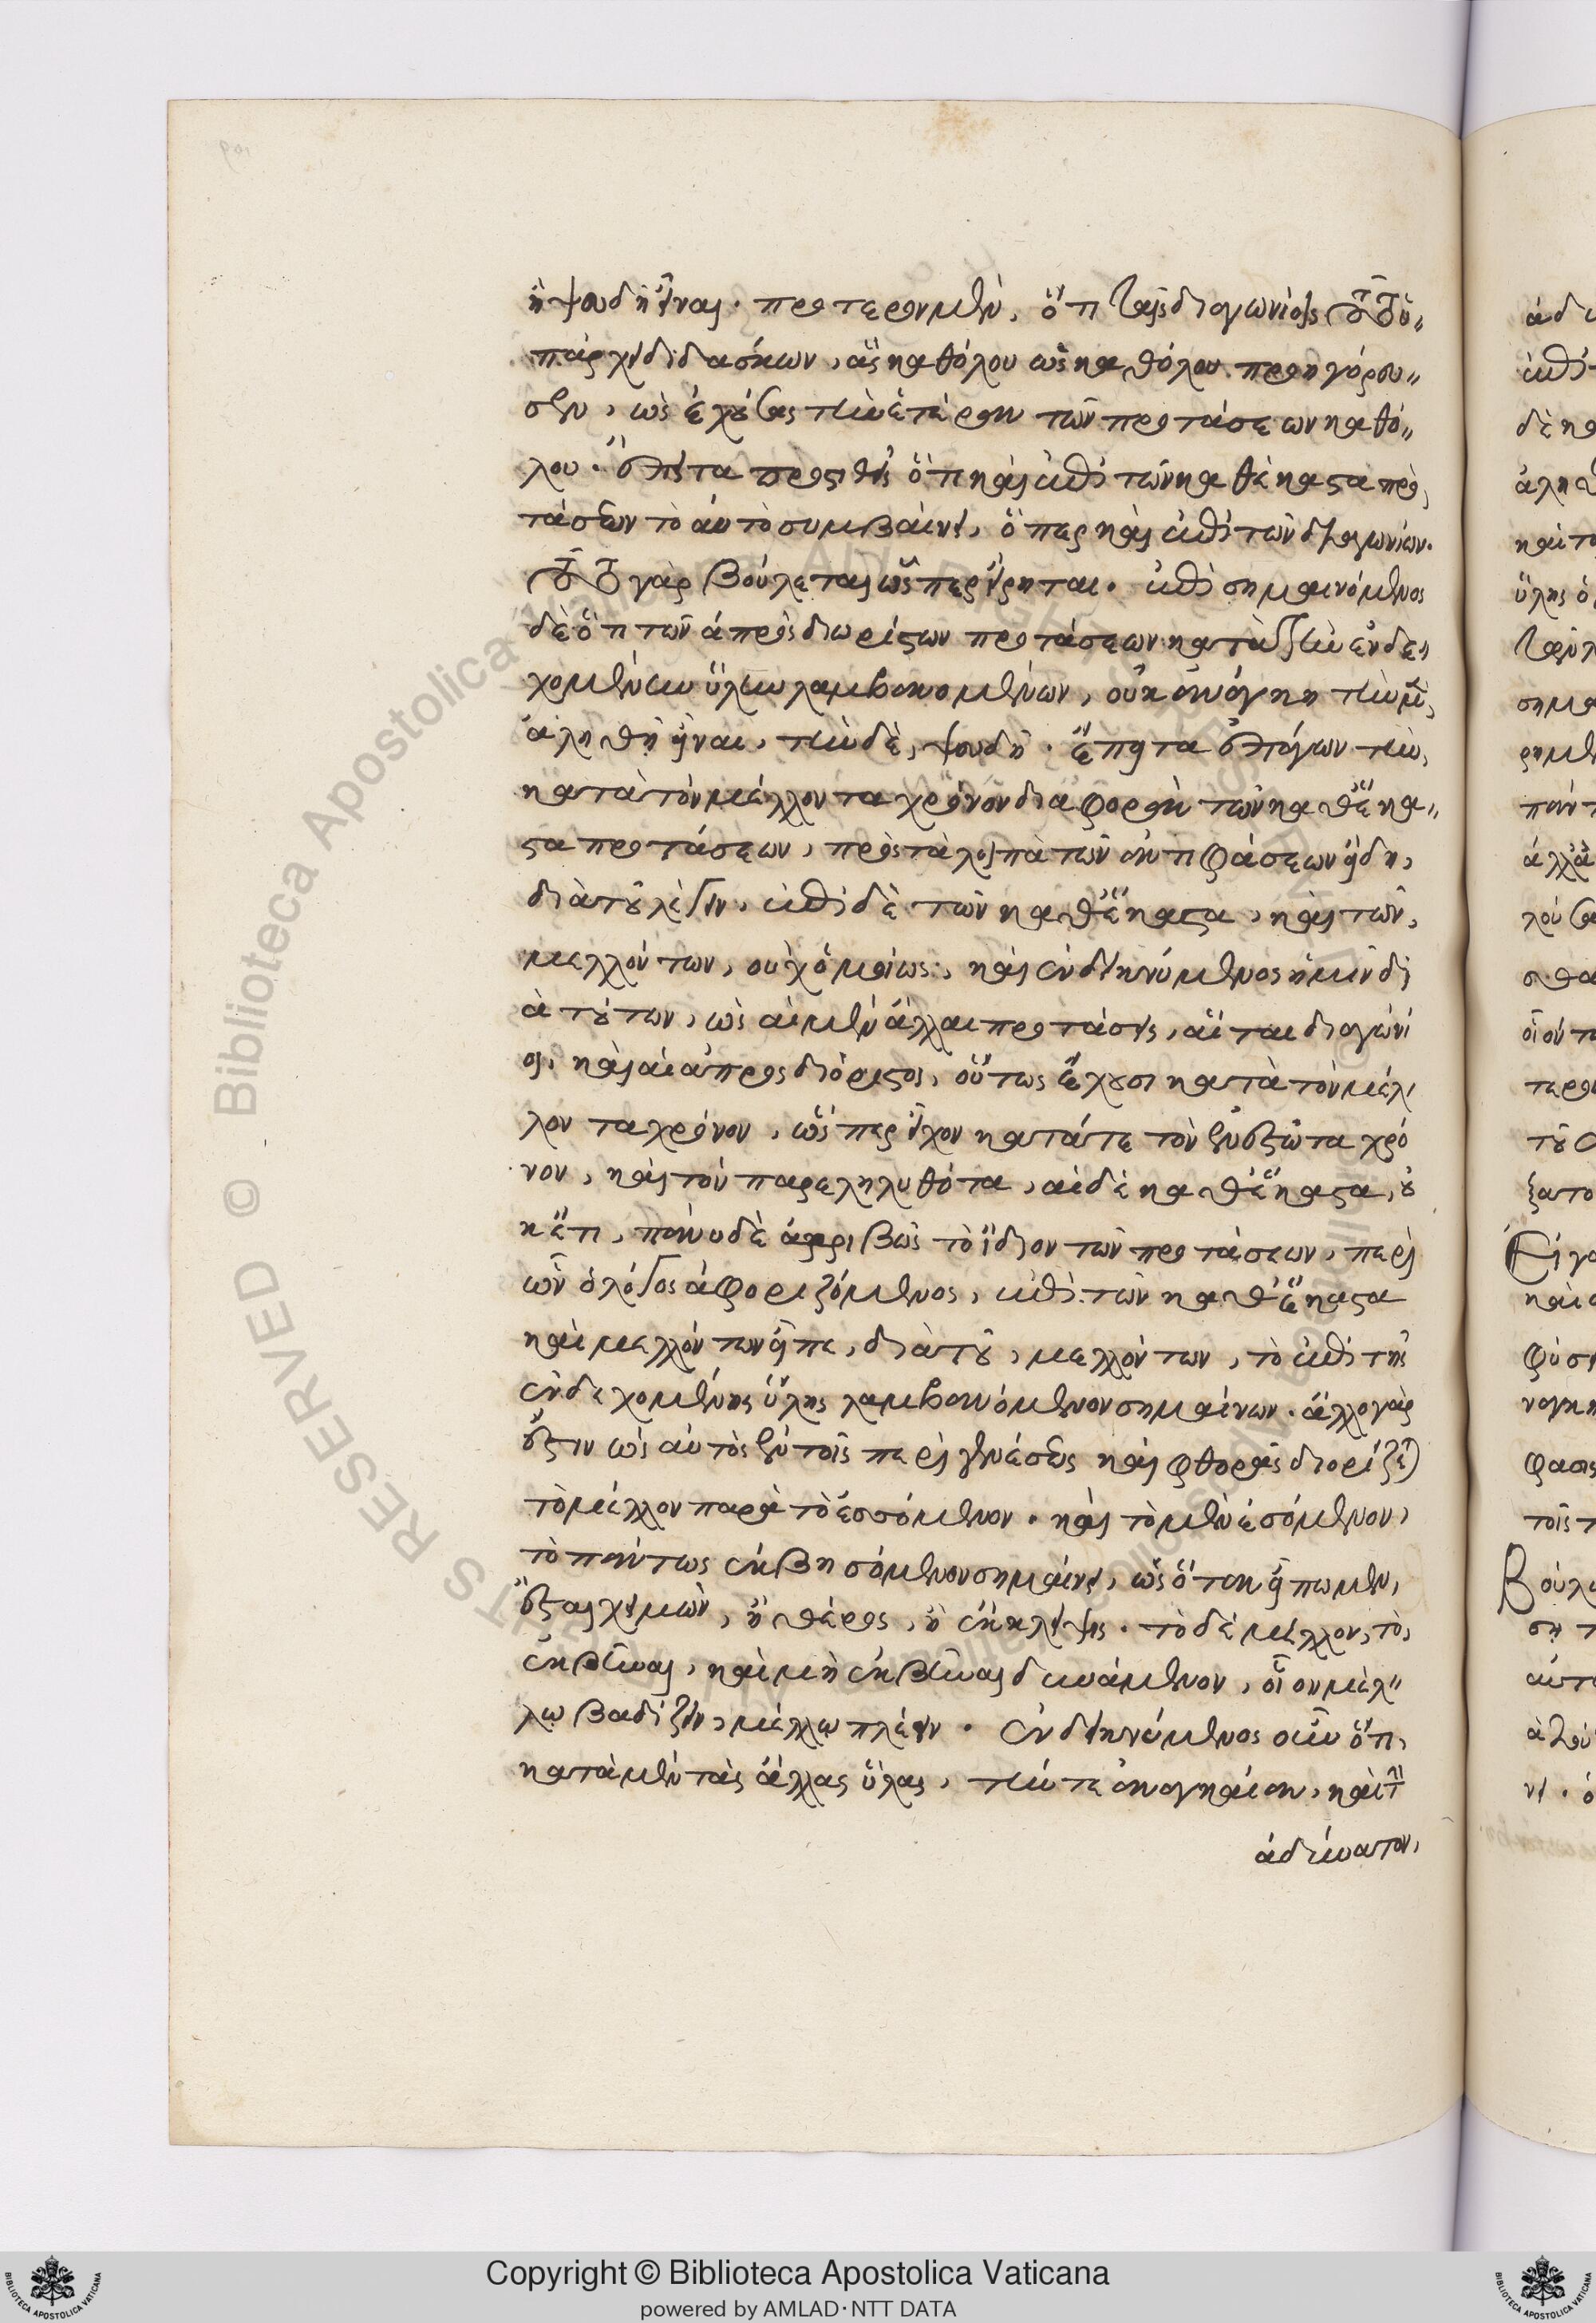 ἢ ψευδῆ εἶναι. πρότερον μὲν, ὅτι ταῖς διαγωνίοις τοῦτο ὑ〃
πάρχει διδάσκων, ἃς καθόλου ὡς καθόλου προηγόρευ〃
σεν, ὡς ἐχούσας τὴν ἑτέραν τῶν προτάσεων καθό〃
λου. ἔπειτα προστιθεὶς ὅτι καὶ ἐπὶ τῶν καθέκαστα προ,
τάσεων τὸ αὐτὸ συμβαίνει, ὅπερ καὶ ἐπὶ τῶν διαγωνίων.
τοῦτο γὰρ βούλεται ὥσπερ εἴρηται. ἐπισημαινόμενος
δὲ ὅτι τῶν ἀπροσδιορίστων προτάσεων κατὰ τὴν ἐνδε〃
χομένην ὕλην λαμβανομένων, οὐκ ἀνάγκη τὴν μὲν,
ἀληθῆ εἶναι, τὴν δὲ, ψευδῆ. ἔπειτα ἐπάγων τὴν,
κατὰ τὸν μέλλοντα χρόνον διαφορὰν τῶν καθέκα〃
στα προτάσεων, πρὸς τὰ λοιπὰ τῶν ἀντιφάσεων εἴδη,
διὰ τοῦ λέγειν, ἐπὶ δὲ τῶν καθέκαστα, καὶ τῶν,
μελλόντων, οὐχ ὁμοίως, καὶ ἐνδεικνύμενος ἡμῖν δι
ὰ τούτων, ὡς αἱ μὲν ἄλλαι προτάσεις, αἵ τε διαγώνι
οι, καὶ αἱ ἀπροσδιόριστοι, οὕτως ἔχουσι κατὰ τὸν μέλ
λοντα χρόνον, ὥσπερ εἶχον κατά τε τὸν ἐνεστῶτα χρό
νον, καὶ τὸν παρεληλυθότα, αἱ δὲ καθέκαστα, οὐ
κέτι, πάνυ δὲ ἀκριβῶς τὸ ἴδιον τῶν προτάσεων, περὶ
ὧν ὁ λόγος ἀφοριζόμενος, ἐπὶ τῶν καθέκαστα
καὶ μελλόντων εἶπε, διὰ τοῦ, μελλόντων, τὸ ἐπὶ τῆς
ἐνδεχομένης ὕλης λαμβανόμενον σημαίνων. ἄλλο γάρ
ἐστιν ὡς αὐτὸς ἐν τοῖς περὶ γενέσεως καὶ φθορᾶς διορίζεται
τὸ μέλλον παρὰ τὸ ἐσσόμενον. καὶ τὸ μὲν ἐσόμενον,
τὸ πάντως ἐκβησόμενον σημαίνει, ὡς ὅταν εἴπωμεν,
ἔσται χειμὼν, ἢ θέρος, ἢ ἔκλειψις. τὸ δὲ μέλλον, τὸ,
ἐκβῆναι, καὶ μὴ ἐκβῆναι δυνάμενον, οἷον μέλ〃
λω βαδίζειν, μέλλω πλέειν. ἐνδεικνύμενος οὖν ὅτι,
κατὰ μὲν τὰς ἄλλας ὕλας, τήν τε ἀναγκαίαν, καὶ τὴν
ἀδύνατον,